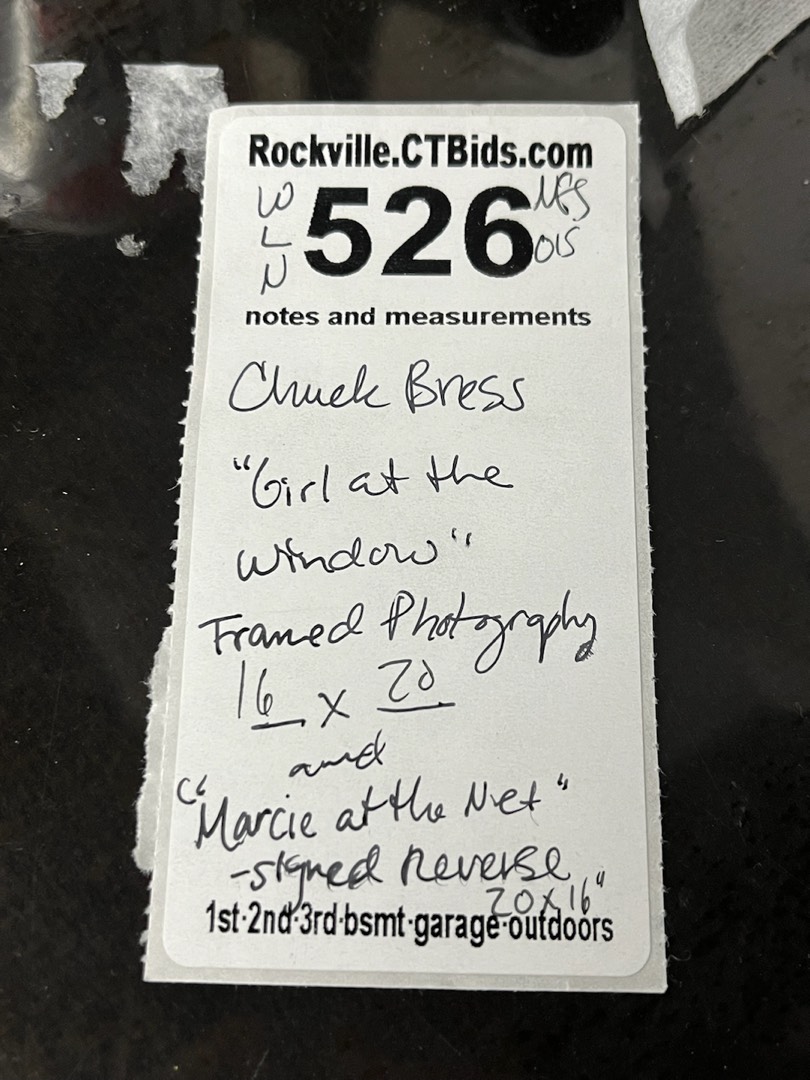 Rockville.CTBids.com
W
L
N
526
015
notes and measurements
Chuck Bress
"Girl at the
Window"
Framed Photography
16 x 20
and
"Marcie at the Net"
-signed Reverse
20x16"
1st·2nd·3rd·bsmt·garage·outdoors